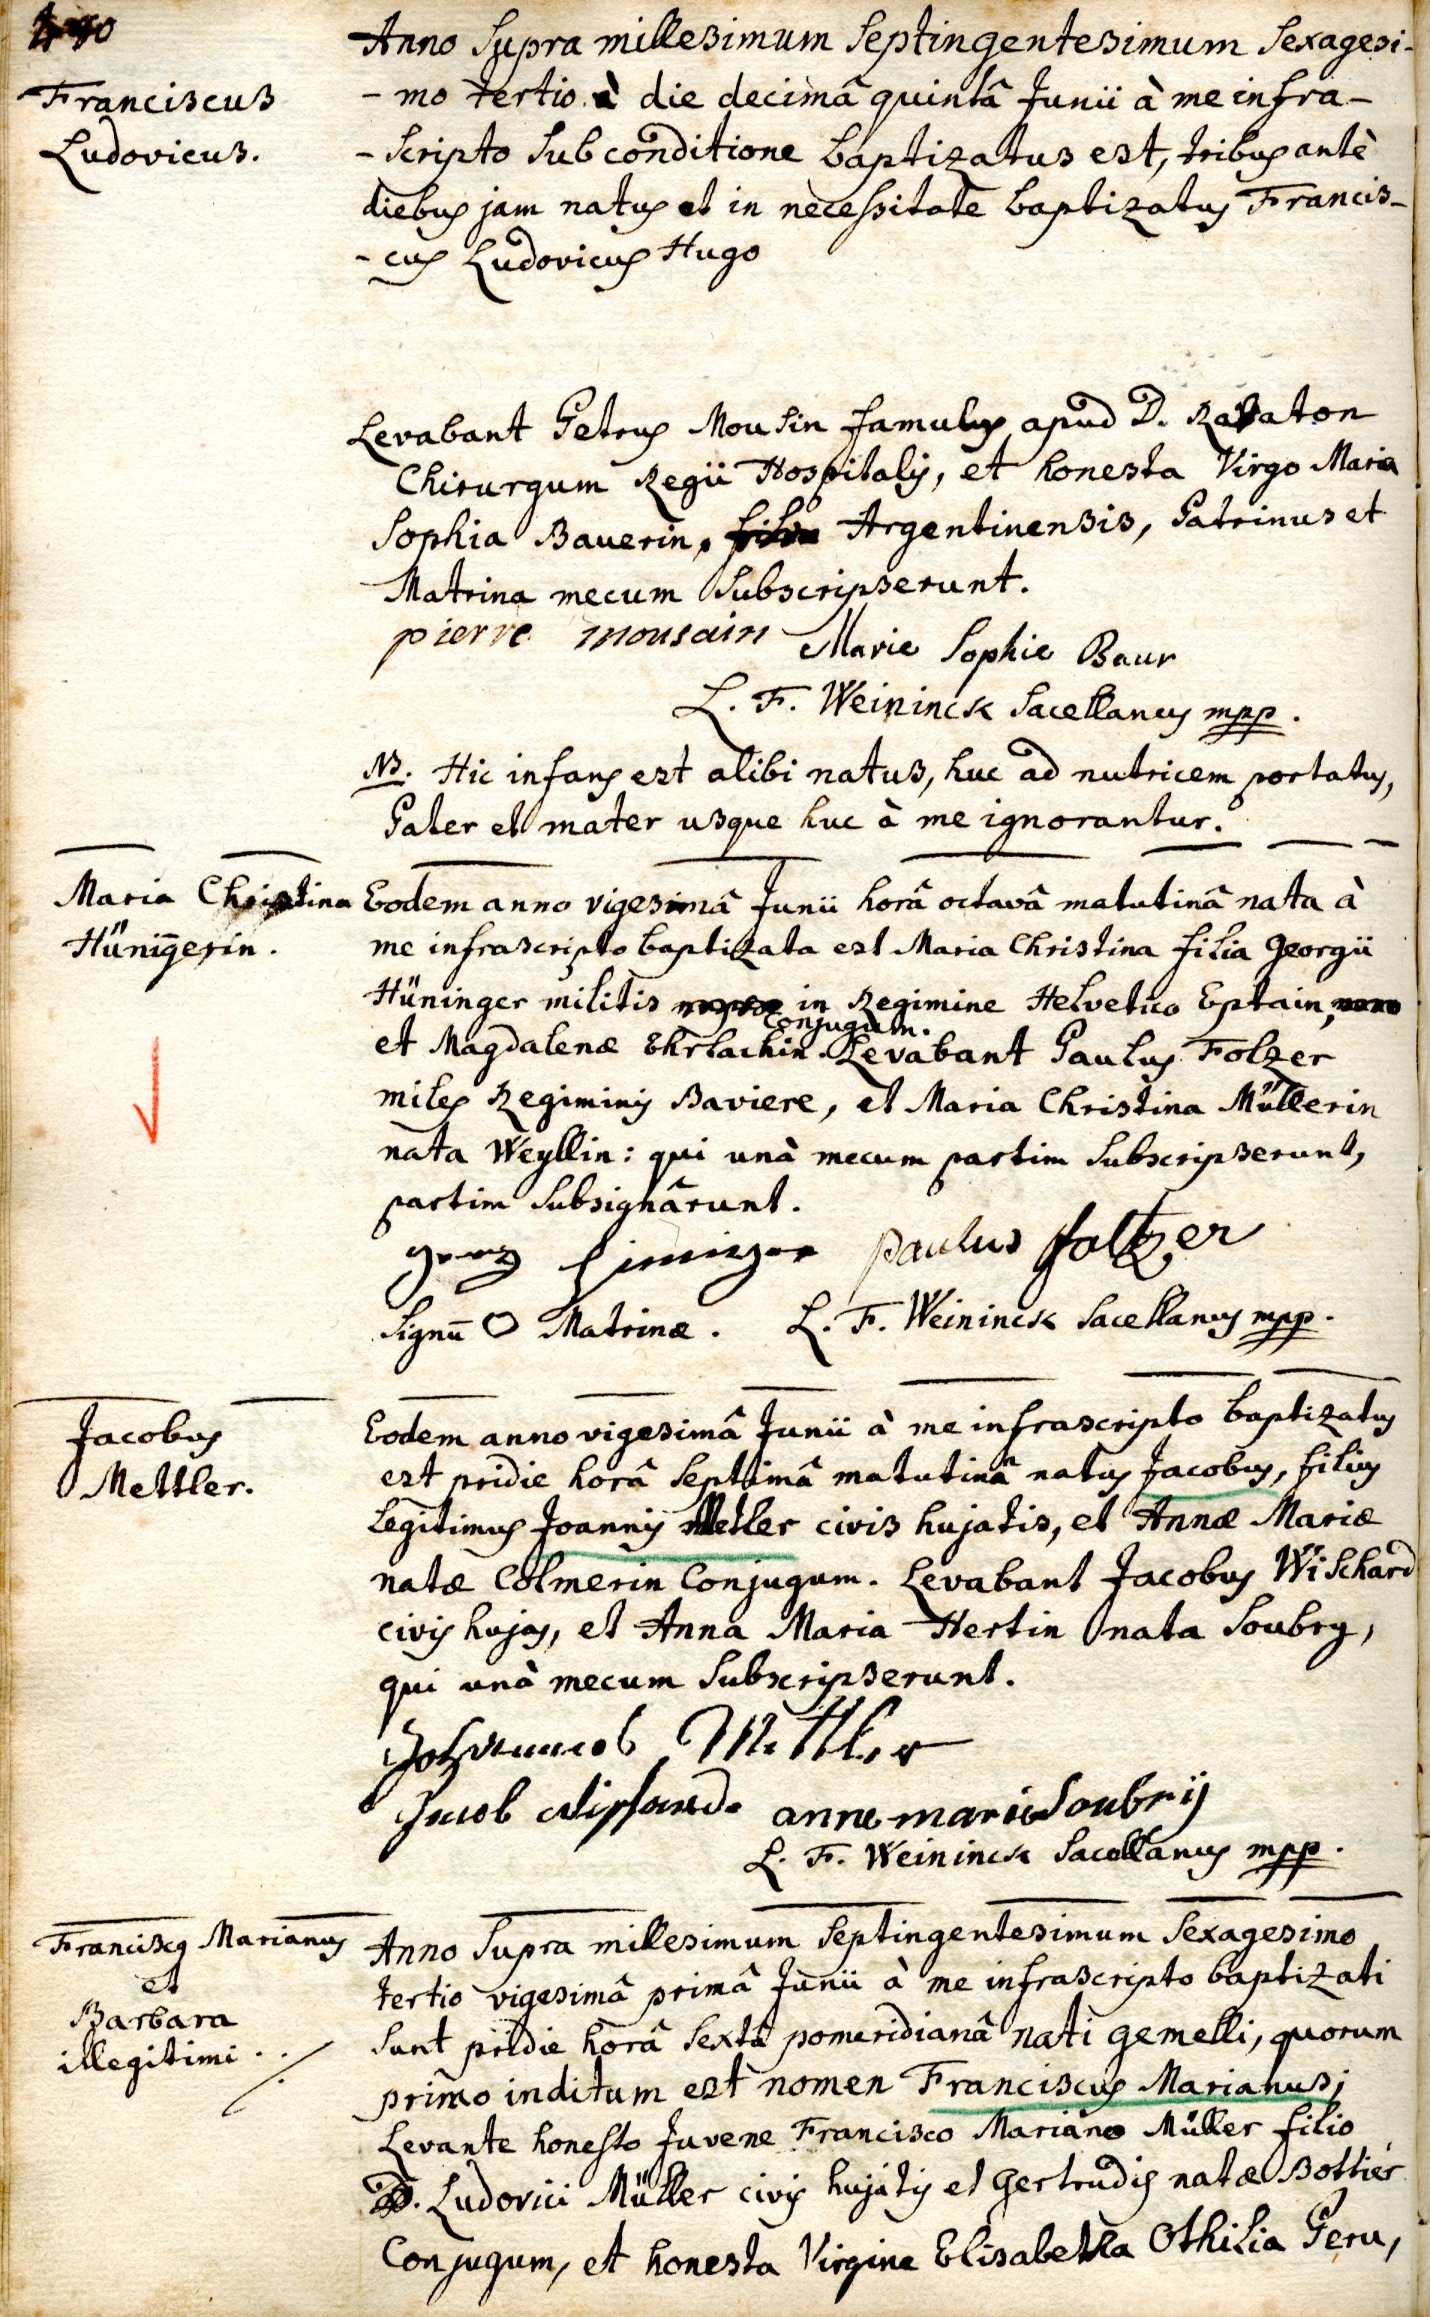 Franciscus
Ludovicus.
Anno Supra millesimum Septingentesimum Sexagesi-
-mo tertio à die decimâ quintâ Junii à me infra-
-scripto Sub conditione baptizatus est, tribus antè
diebus jam natus et in necessitate baptizatus Francis-
-cus Ludovicus Hugo
Levabant Petrus Mousin famulus apud D. Ravaton
Chirurgum Regii Hospitalis, et honesta Virgo Maria
Sophia Bauerin, Argentinensis, Patrinus et
Matrina mecum Subscripserunt.
pierre mousain Marie Sophie Baur
L. F. Weininck Sacellanus mpp.
NB. Hic infans est alibi natus, huc ad nutricem portatus,
Pater et mater usque huc à me ignorantur.
Maria Christina
Hüningerin.
Eodem anno vigesimâ Junii horâ octavâ matutinâ nata à
me infrascripto baptizata est Maria Christina filia Georgii
Hüninger militis in Regimine Helvetico Eptain,
et Magdalenæ Ehrlachin Conjugum. Levabant Paulus Folzer
miles Regiminis Baviere, et Maria Christina Müllerin
nata Weyllin: qui unà mecum partim Subscripserunt,
partim Subsignârunt.
paulus foltzer
Signū O Matrinæ. L. F. Weininck Sacellanus mpp.
Jacobus
Mettler.
Eodem anno vigesimâ Junii à me infrascripto baptizatus
est pridie horâ Septimâ matutinâ natus Jacobus, filius
Legitimus Joannis Metler civis hujatis, et Annæ Mariæ
natæ Colmerin Conjugum. Levabant Jacobus Wischard
civis hujas, et Anna Maria Hertin nata Soubry,
qui unà mecum Subscripserunt.
Mittler
Jacob anne marie Soubrÿ
L. F. Weininck Sacellanus mpp.
Franciscus Marianus
et
Barbara
illegitimi.
Anno Supra millesimum Septingentesimum Sexagesimo
tertio vigesimâ primâ Junii à me infrascripto baptizati
Sunt pridie horâ Sextâ pomeridianâ nati gemelli, quorum
primo inditum est nomen Franciscus Marianus;
Levante honesto Juvene Francisco Mariano Müller filio
D. Ludovici Müller civis hujatis et Gertrudis natæ Bottier
Conjugum, et honesta Virgine Elisabetha Othilia Peru,